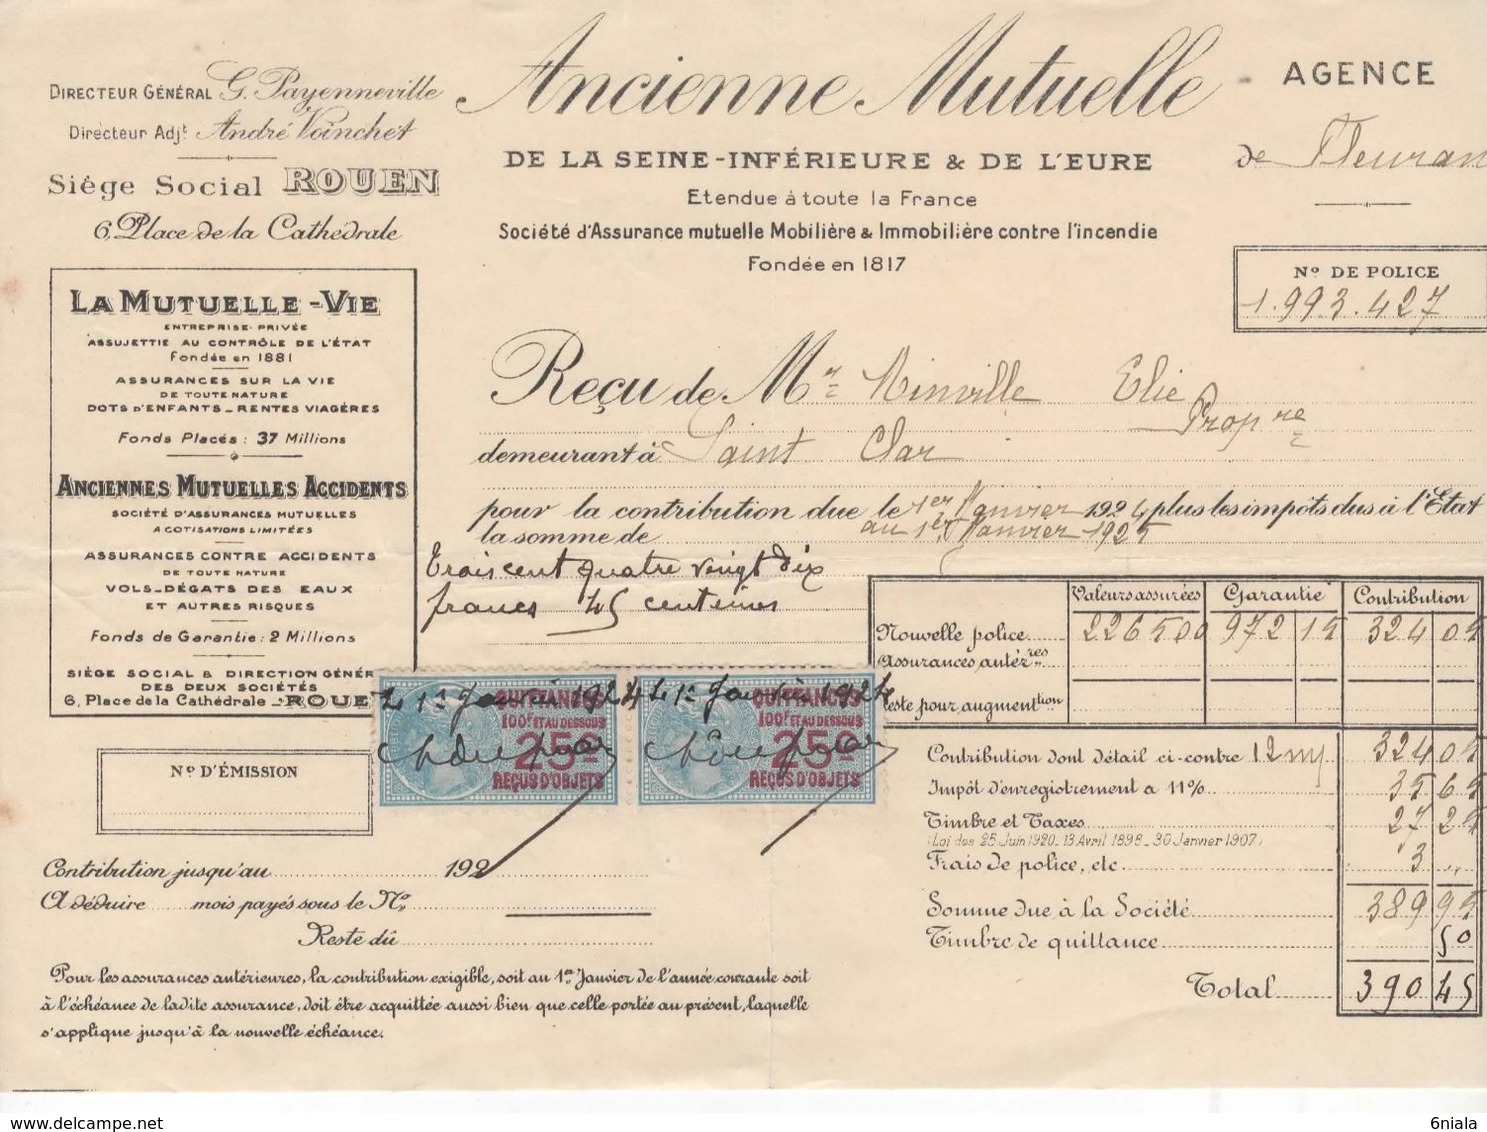 DIRECTEUR GÉNÉRAL G. Payenneville
Directeur Adjt André Voinchet
Siège Social ROUEN
6, Place de la Cathédrale
Ancienne Mutuelle
DE LA SEINE-INFÉRIEURE & DE L'EURE
Etendue à toute la France
Société d'Assurance mutuelle Mobilière & Immobilière contre l'incendie
Fondée en 1817
AGENCE
de Fleuran
No DE POLICE
1.993.427
LA MUTUELLE-VIE
ENTREPRISE PRIVÉE
ASSUJETTIE AU CONTRÔLE DE L'ÉTAT
Fondée en 1881
ASSURANCES SUR LA VIE
DE TOUTE NATURE
DOTS D'ENFANTS - RENTES VIAGÈRES
Fonds Placés : 37 Millions
ANCIENNES MUTUELLES ACCIDENTS
SOCIÉTÉ D'ASSURANCES MUTUELLES
A COTISATIONS LIMITÉES
ASSURANCES CONTRE ACCIDENTS
DE TOUTE NATURE
VOLS-DÉGATS DES EAUX
ET AUTRES RISQUES
Fonds de Garantie : 2 Millions
SIÈGE SOCIAL & DIRECTION GÉNÉR
DES DEUX SOCIÉTÉS
6, Place de la Cathédrale - ROUE
Reçu de Mr Minville Elie
Propre
demeurant à Saint Clar
pour la contribution due le 1er Janvier 1924 plus les impôts dus à l'État
la somme de au 1er Janvier 1925
Trois cent quatre vingt dix
francs 45 centimes
Valeurs assurées Garantie Contribution
Nouvelle police 226500 972 15 324 05
Assurances antérres
este pour augmentation
1r Janvier 1924 1r Janvier 1924
QUITTANCES QUITTANCES
100F ET AU DESSOUS 100F ET AU DESSOUS
25c 25c
REÇUS D'OBJETS REÇUS D'OBJETS
No D'ÉMISSION
Contribution jusqu'au 192
A déduire mois payés sous le No
Reste dû
Contribution dont détail ci-contre 12 324 05
Impôt d'enregistrement a 11% 35 65
Timbre et Taxes 27 25
(Loi des 25 Juin 1920 - 13 Avril 1898 - 30 Janvier 1907)
Frais de police, etc 3 "
Somme due à la Société 389 95
Timbre de quittance 50
Total 390 45
Pour les assurances antérieures, la contribution exigible, soit au 1er Janvier de l'année courante soit
à l'échéance de ladite assurance, doit être acquittée aussi bien que celle portée au présent, laquelle
s'applique jusqu'à la nouvelle échéance.
6niala